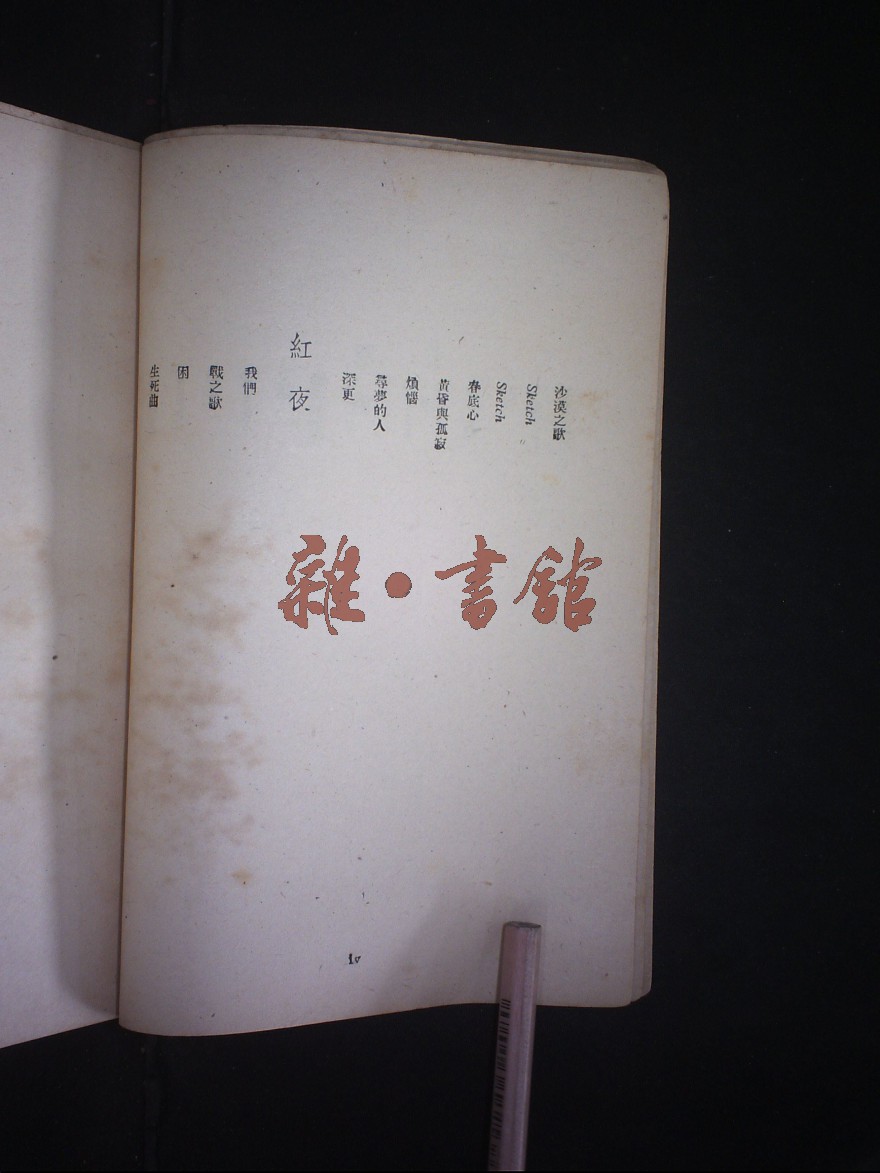 沙漠之歌
Sketch
Sketch
春底心
黃昏與孤寂
煩惱
尋夢的人
深更
紅夜
我們
戰之歌
困
生死曲
雜・書館
iv